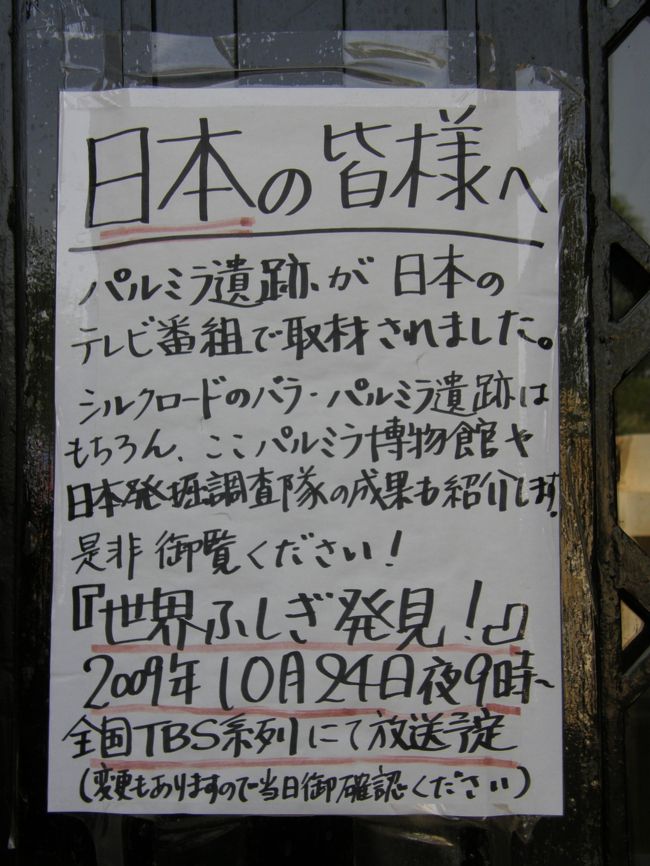 日本の皆様へ
パルミラ遺跡が日本の
テレビ番組で取材されました。
シルクロードのバラ・パルミラ遺跡は
もちろん、ここパルミラ博物館や
日本発掘調査隊の成果も紹介します。
是非御覧ください！
『世界ふしぎ発見！』
2009年10月24日夜9時~
全国TBS系列にて放送予定
(変更もありますので当日御確認ください)